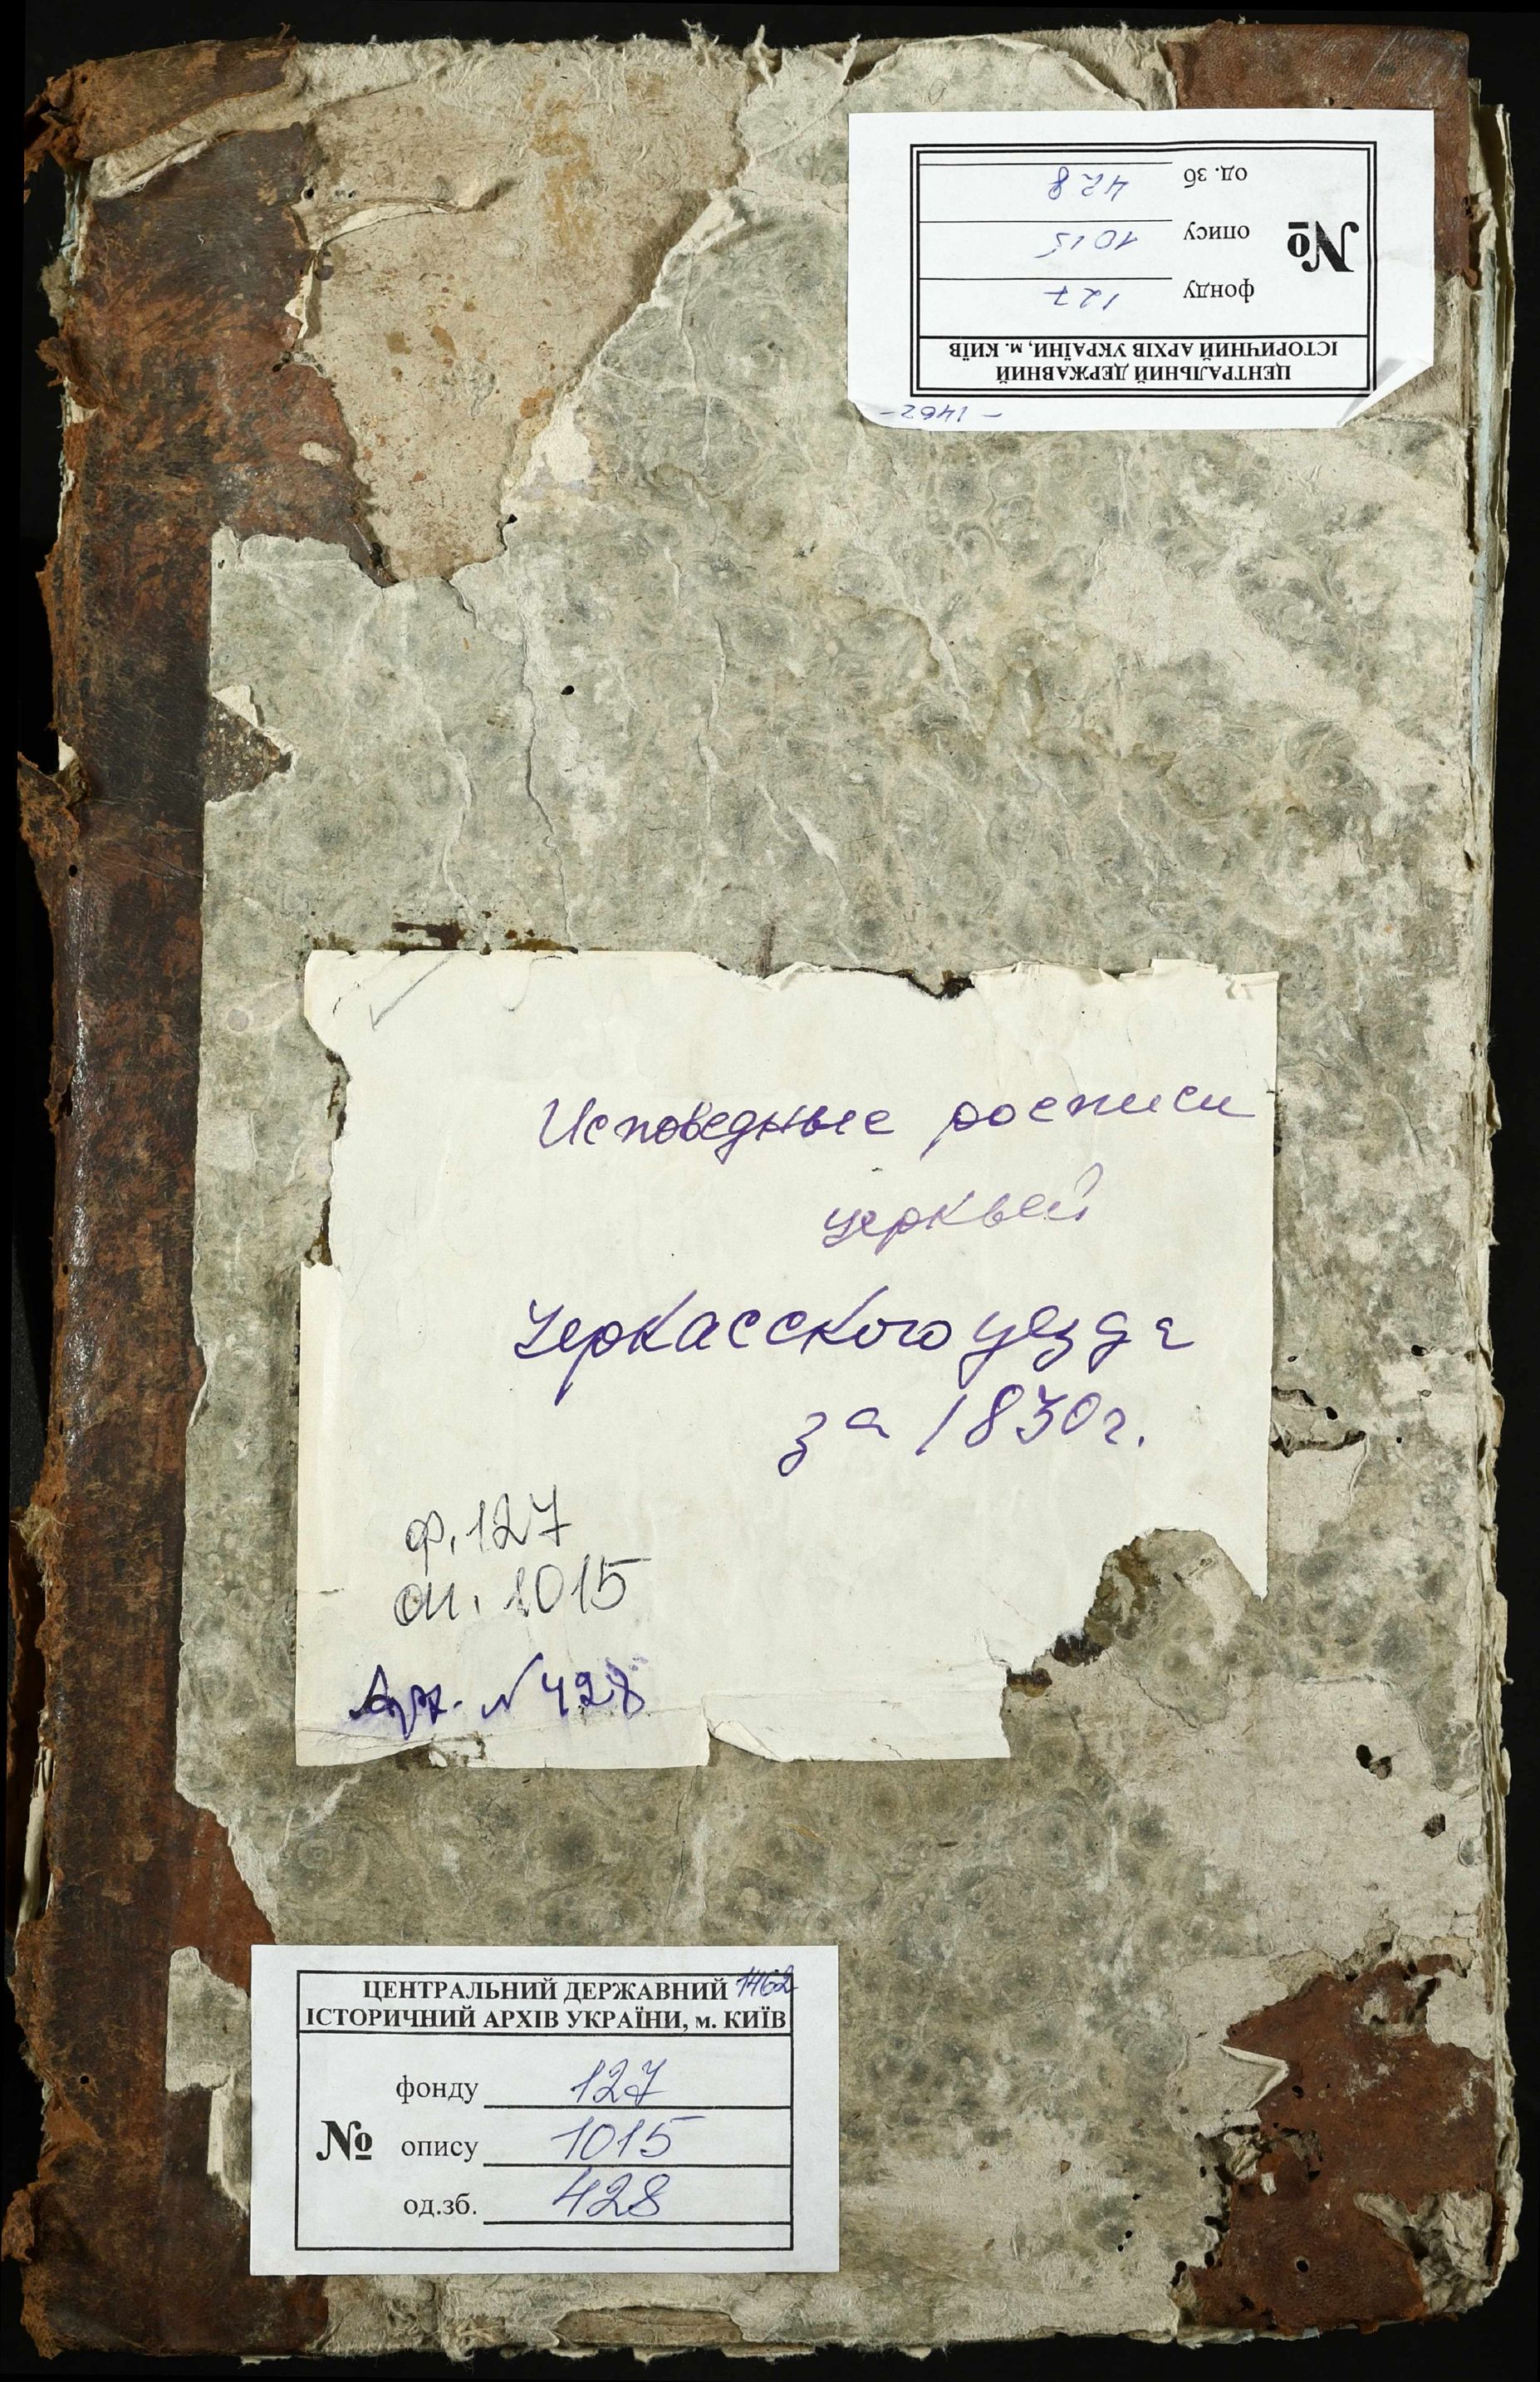 ЦЕНТРАЛЬНИЙ ДЕРЖАВНИЙ
ІСТОРИЧНИЙ АРХІВ УКРАЇНИ, м. КИЇВ
фонду 127
№ опису 1015
од. зб 428
-1462-
Исповедные росписи
церквей
Черкасского уезда
за 1830г.
ф. 127
оп. 1015
Арх. № 428
ЦЕНТРАЛЬНИЙ ДЕРЖАВНИЙ 1462
ІСТОРИЧНИЙ АРХІВ УКРАЇНИ, м. КИЇВ
фонду 127
№ опису 1015
од.зб. 428